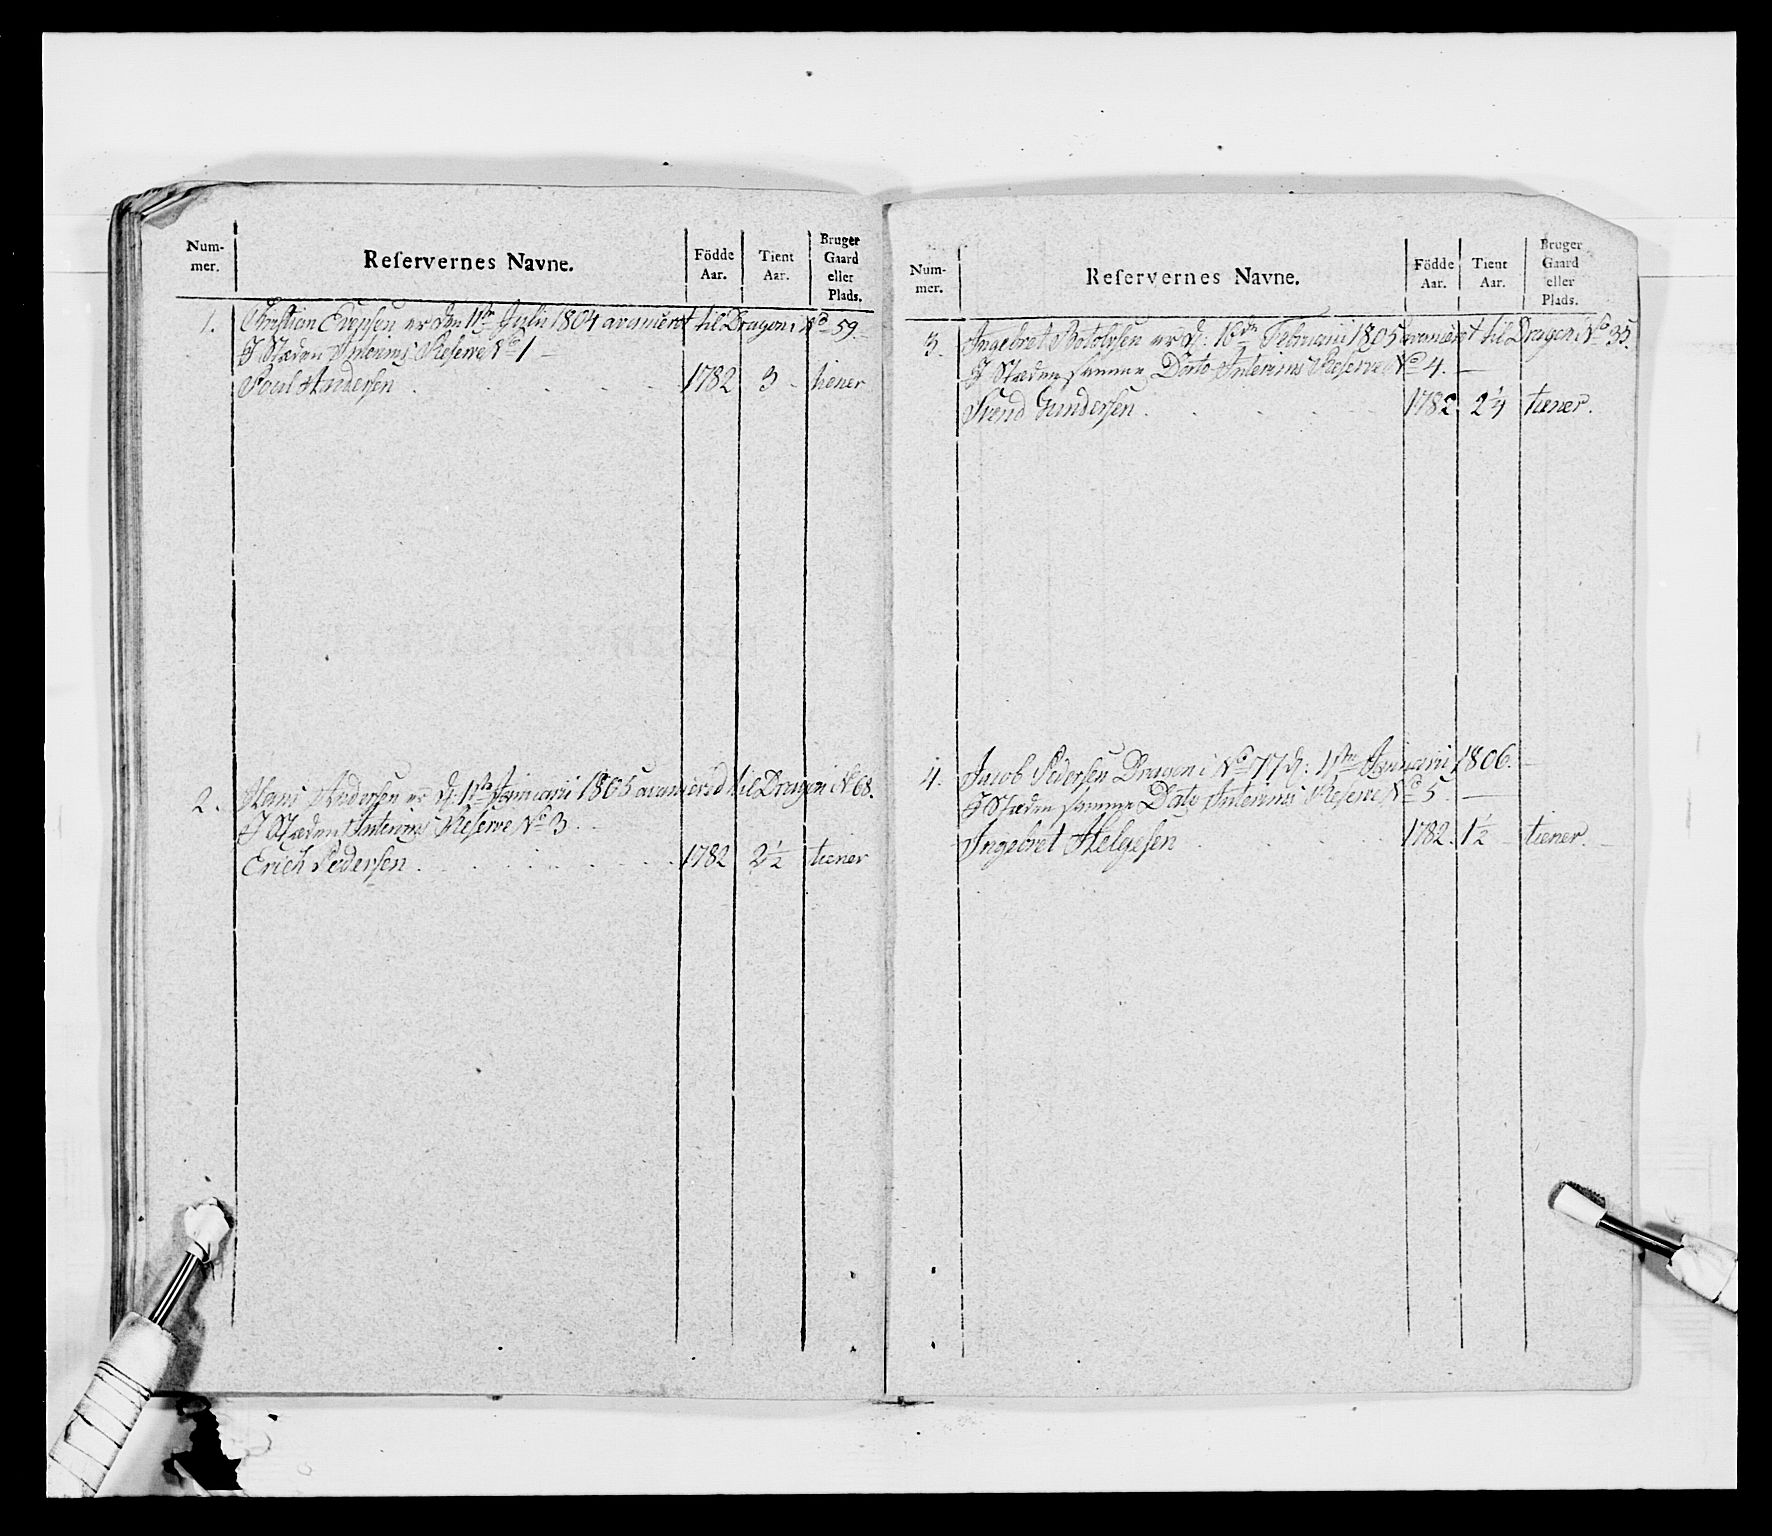 Num-
mer.
Reservernes Navne.
Födde
Aar.
Tient
Aar.
Bruger
Gaard
eller
Plads.
1. Christian er den 11te Julii 1804 avanceret til Dragon i No 59.
I Stæden Interims Reserve No 1
Poul Andersen 1782 3 tiener
2. Hans Andersen er d: 1ste Januarii 1805 avancered til Dragon i No 68.
I Stæden Interims Reserve No 3.
Erich Pedersen 1782 2½ tiener
Num-
mer.
Reservernes Navne.
Födde
Aar.
Tient
Aar.
Bruger
Gaard
eller
Plads.
3. Ingebret er d: 16de Februarii 1805 avanceret til Dragon i No 35.
I Stæden samme Dato Interims Reserve No 4.
Svend Gundersen 1782 2¼ tiener.
4. Jacob Pedersen Dragon i No 77 d: 1ste Januarii 1806.
I Stæden samme Dato Interims Reserve No 5
Ingebret Helgesen 1782. 1½ tiener.